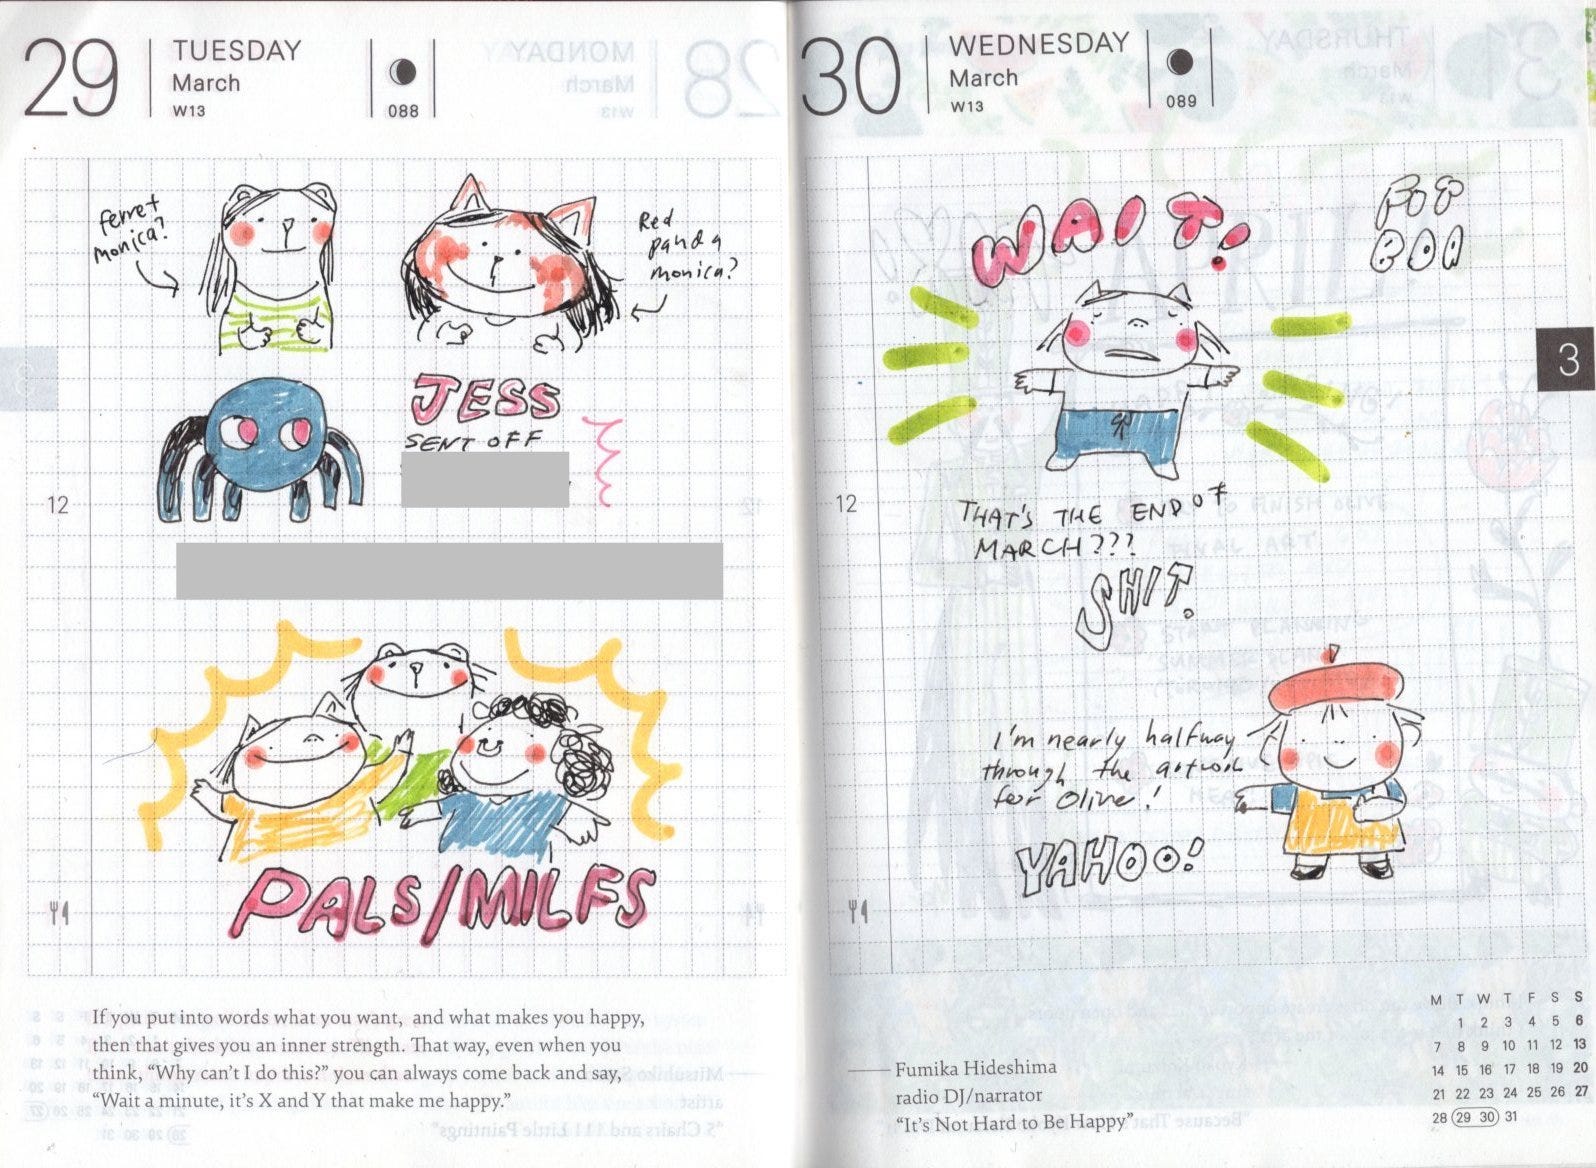 29
TUESDAY
March
W13
088
ferret
monica?
Red
panda
monica?
JESS
SENT OFF
12
PALS/MILFS
If you put into words what you want, and what makes you happy,
then that gives you an inner strength. That way, even when you
think, “Why can’t I do this?” you can always come back and say,
“Wait a minute, it’s X and Y that make me happy.”
30
WEDNESDAY
March
W13
089
WAIT!
3
12
THAT'S THE END OF
MARCH???
SHIT.
I'm nearly halfway
through the artwork
for Olive!
YAHOO!
Fumika Hideshima
radio DJ/narrator
“It’s Not Hard to Be Happy”
M T W T F S S
1 2 3 4 5 6
7 8 9 10 11 12 13
14 15 16 17 18 19 20
21 22 23 24 25 26 27
28 29 30 31